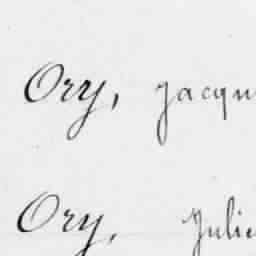 Ory, Jacqu
Ory, Julie